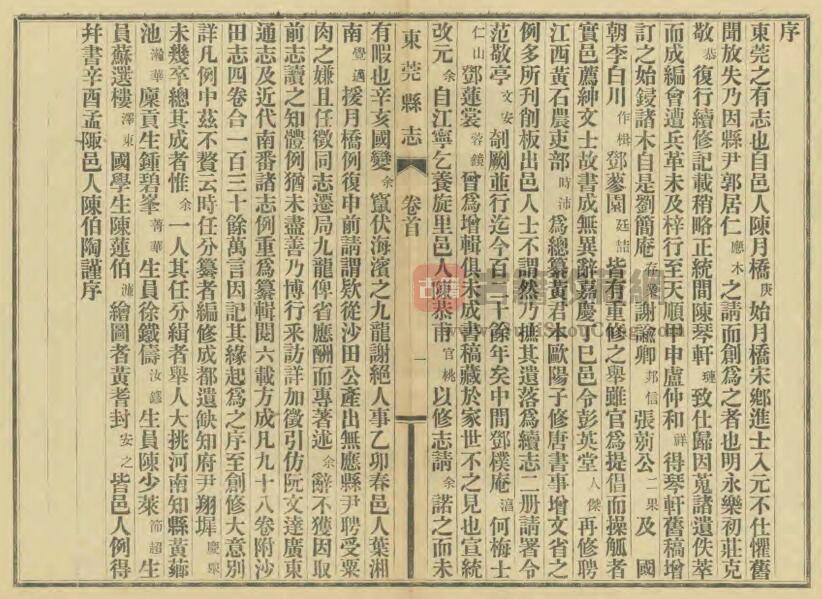 序
東莞之有志也自邑人陳月橋庚始月橋宋鄉進士入元不仕懼舊
聞放失乃因縣尹郭居仁應木之請而創為之者也明永樂初莊克
敬恭復行續修記載稍略正統間陳琴軒璉致仕歸因蒐諸遺佚萃
而成編會遭兵革未及梓行至天順甲申盧仲和祥得琴軒舊稿增
訂之始鋟諸木自是劉簡庵存業謝謐卿邦信張荊公二果及國
朝李白川作楫鄧蓼園廷喆皆有重修之舉雖官為提倡而操觚者
實邑薦紳文士故書成無異辭嘉慶丁巳邑令彭英堂人傑再修聘
江西黃石農吏部時沛為總纂黃君本歐陽子修唐書事增文省之
例多所刊削板出邑人士不謂然乃摭其遺落為續志二册請署令
范敬亭文安剞劂並行迄今百二十餘年矣中間鄧樸庵淳何梅士
仁山鄧蓮裳蓉鏡曾為增輯俱未成書稿藏於家世不之見也宣統
改元余自江寧乞養旋里邑人陳恭甫官桃以修志請余諾之而未
東莞縣志
卷首
一
有暇也辛亥國變余竄伏海濱之九龍謝絕人事乙卯春邑人葉湘
南覺邁援月橋例復申前請謂欵從沙田公產出無應縣尹聘受粟
肉之嫌且任徵同志遷局九龍俾省應酬而專著述余辭不獲因取
前志讀之知體例猶未盡善乃博行采訪詳加徵引仿阮文達廣東
通志及近代南番諸志例重為纂輯閱六載方成凡九十八卷附沙
田志四卷合一百三十餘萬言因記其緣起為之序至創修大意別
詳凡例中茲不贅云時任分纂者編修成都遺缺知府尹翔墀慶舉
未幾卒總其成者惟余一人其任分緝者舉人大挑河南知縣黃薌
池瀚華廩貢生鍾碧峯菁華生員徐鐵儔汝鑣生員陳少萊節超生
員蘇選樓澤東國學生陳蓮伯漉繪圖者黃耆封安之皆邑人例得
并書辛酉孟陬邑人陳伯陶謹序
古籍